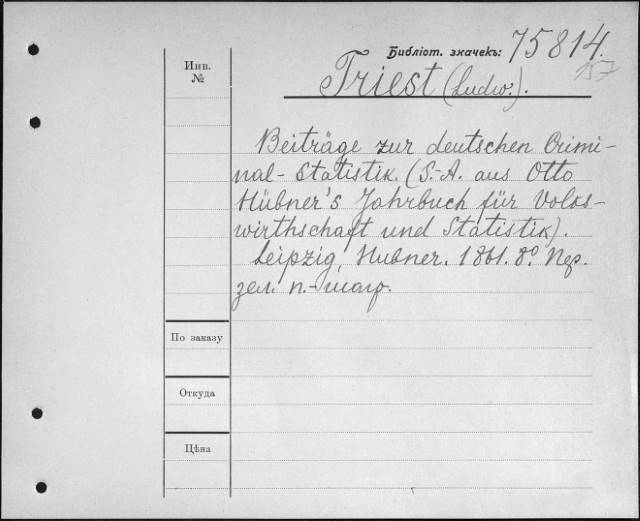 Библіот. значекъ: 75814.
157
Инв.
№
Triest (Ludw.).
Beiträge zur deutschen Crimi-
nal-Statistik. (S.-A. aus Otto
Hübner's Jahrbuch für Volks-
wirthschaft und Statistik).
Leipzig, Hubner. 1861. 8° Пер.
зел. п.-шагр.
По заказу
Откуда
Цѣна